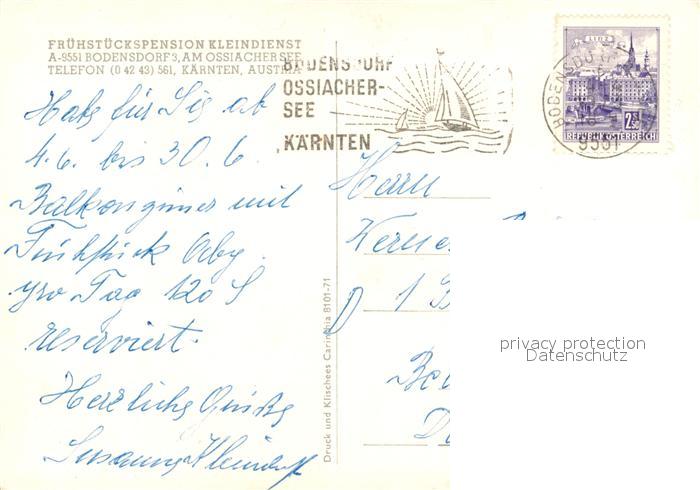 FRÜHSTÜCKSPENSION KLEINDIENST
A-9551 BODENSDORF 3, AM OSSIACHER SEE
TELEFON (0 42 43) 561, KÄRNTEN, AUSTRIA
BODENSDORF
OSSIACHER-
SEE
KÄRNTEN
LINZ
2.50
REPUBLIK ÖSTERREICH
BODENSDO
9551
Habe für Sie ab
4.6. bis 30.6.
Balkonzimmer mit
Frühstück
pro Tag 120 S
reserviert.
Herzliche Grüße
Susanna Kleindienst
Herrn
1 B
D
Druck und Klischees Carinthia 8101-71
privacy protection
Datenschutz